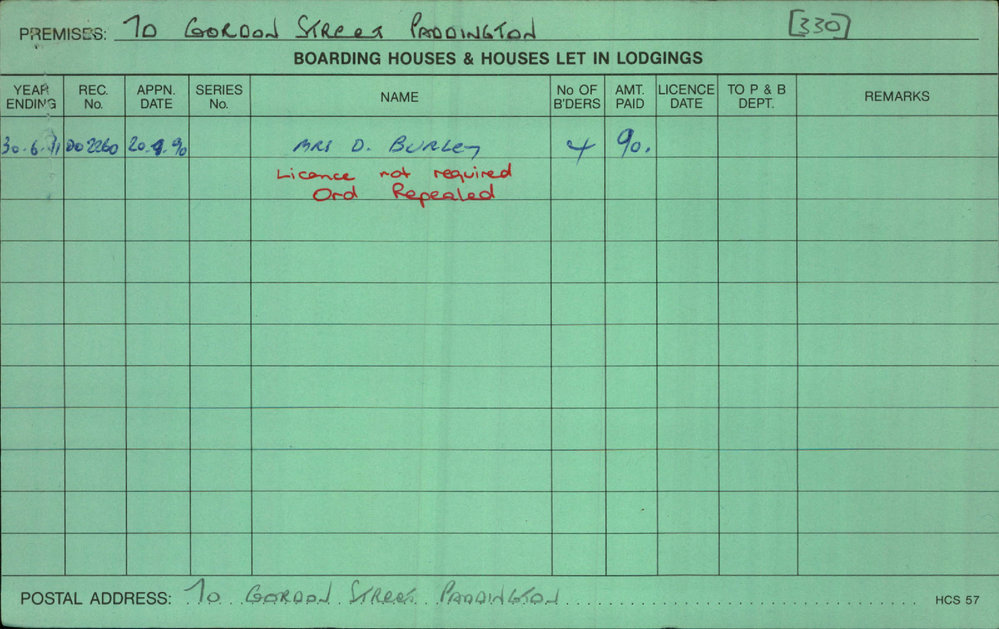 PREMISES: 70 GORDON STREET PADDINGTON [330]
BOARDING HOUSES & HOUSES LET IN LODGINGS
YEAR ENDING REC. No. APPN. DATE SERIES No. NAME No OF B'DERS AMT. PAID LICENCE DATE TO P & B DEPT. REMARKS
30.6.91 002260 20.9.90 MRS D. BURLEY 4 90.
Licence not required
Ord Repealed
POSTAL ADDRESS: 70 GORDON STREET PADDINGTON HCS 57